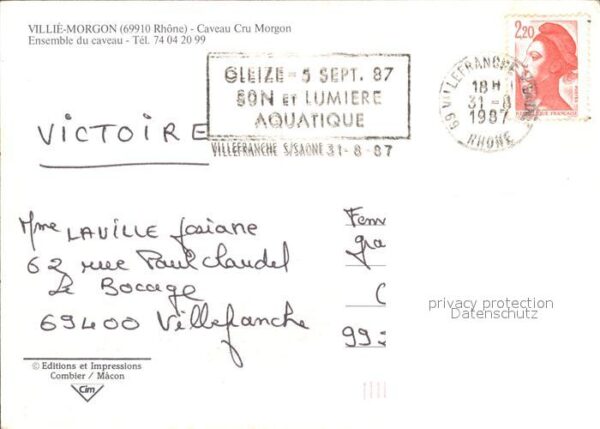 VILLIÉ-MORGON (69910 Rhône) - Caveau Cru Morgon
Ensemble du caveau - Tél. 74 04 20 99
GLEIZE - 5 SEPT. 87
SON et LUMIERE
AQUATIQUE
VILLEFRANCHE S/SAONE 31-8-87
69 VILLEFRANCHE
18H
31-8
1987
RHONE
2,20
VICTOIRE
Mme LAVILLE Josiane
62 rue Paul Claudel
Le Bocage
69400 Villefranche
Fem
gra
C
99
privacy protection
Datenschutz
© Editions et Impressions
Combier / Mâcon
Cim